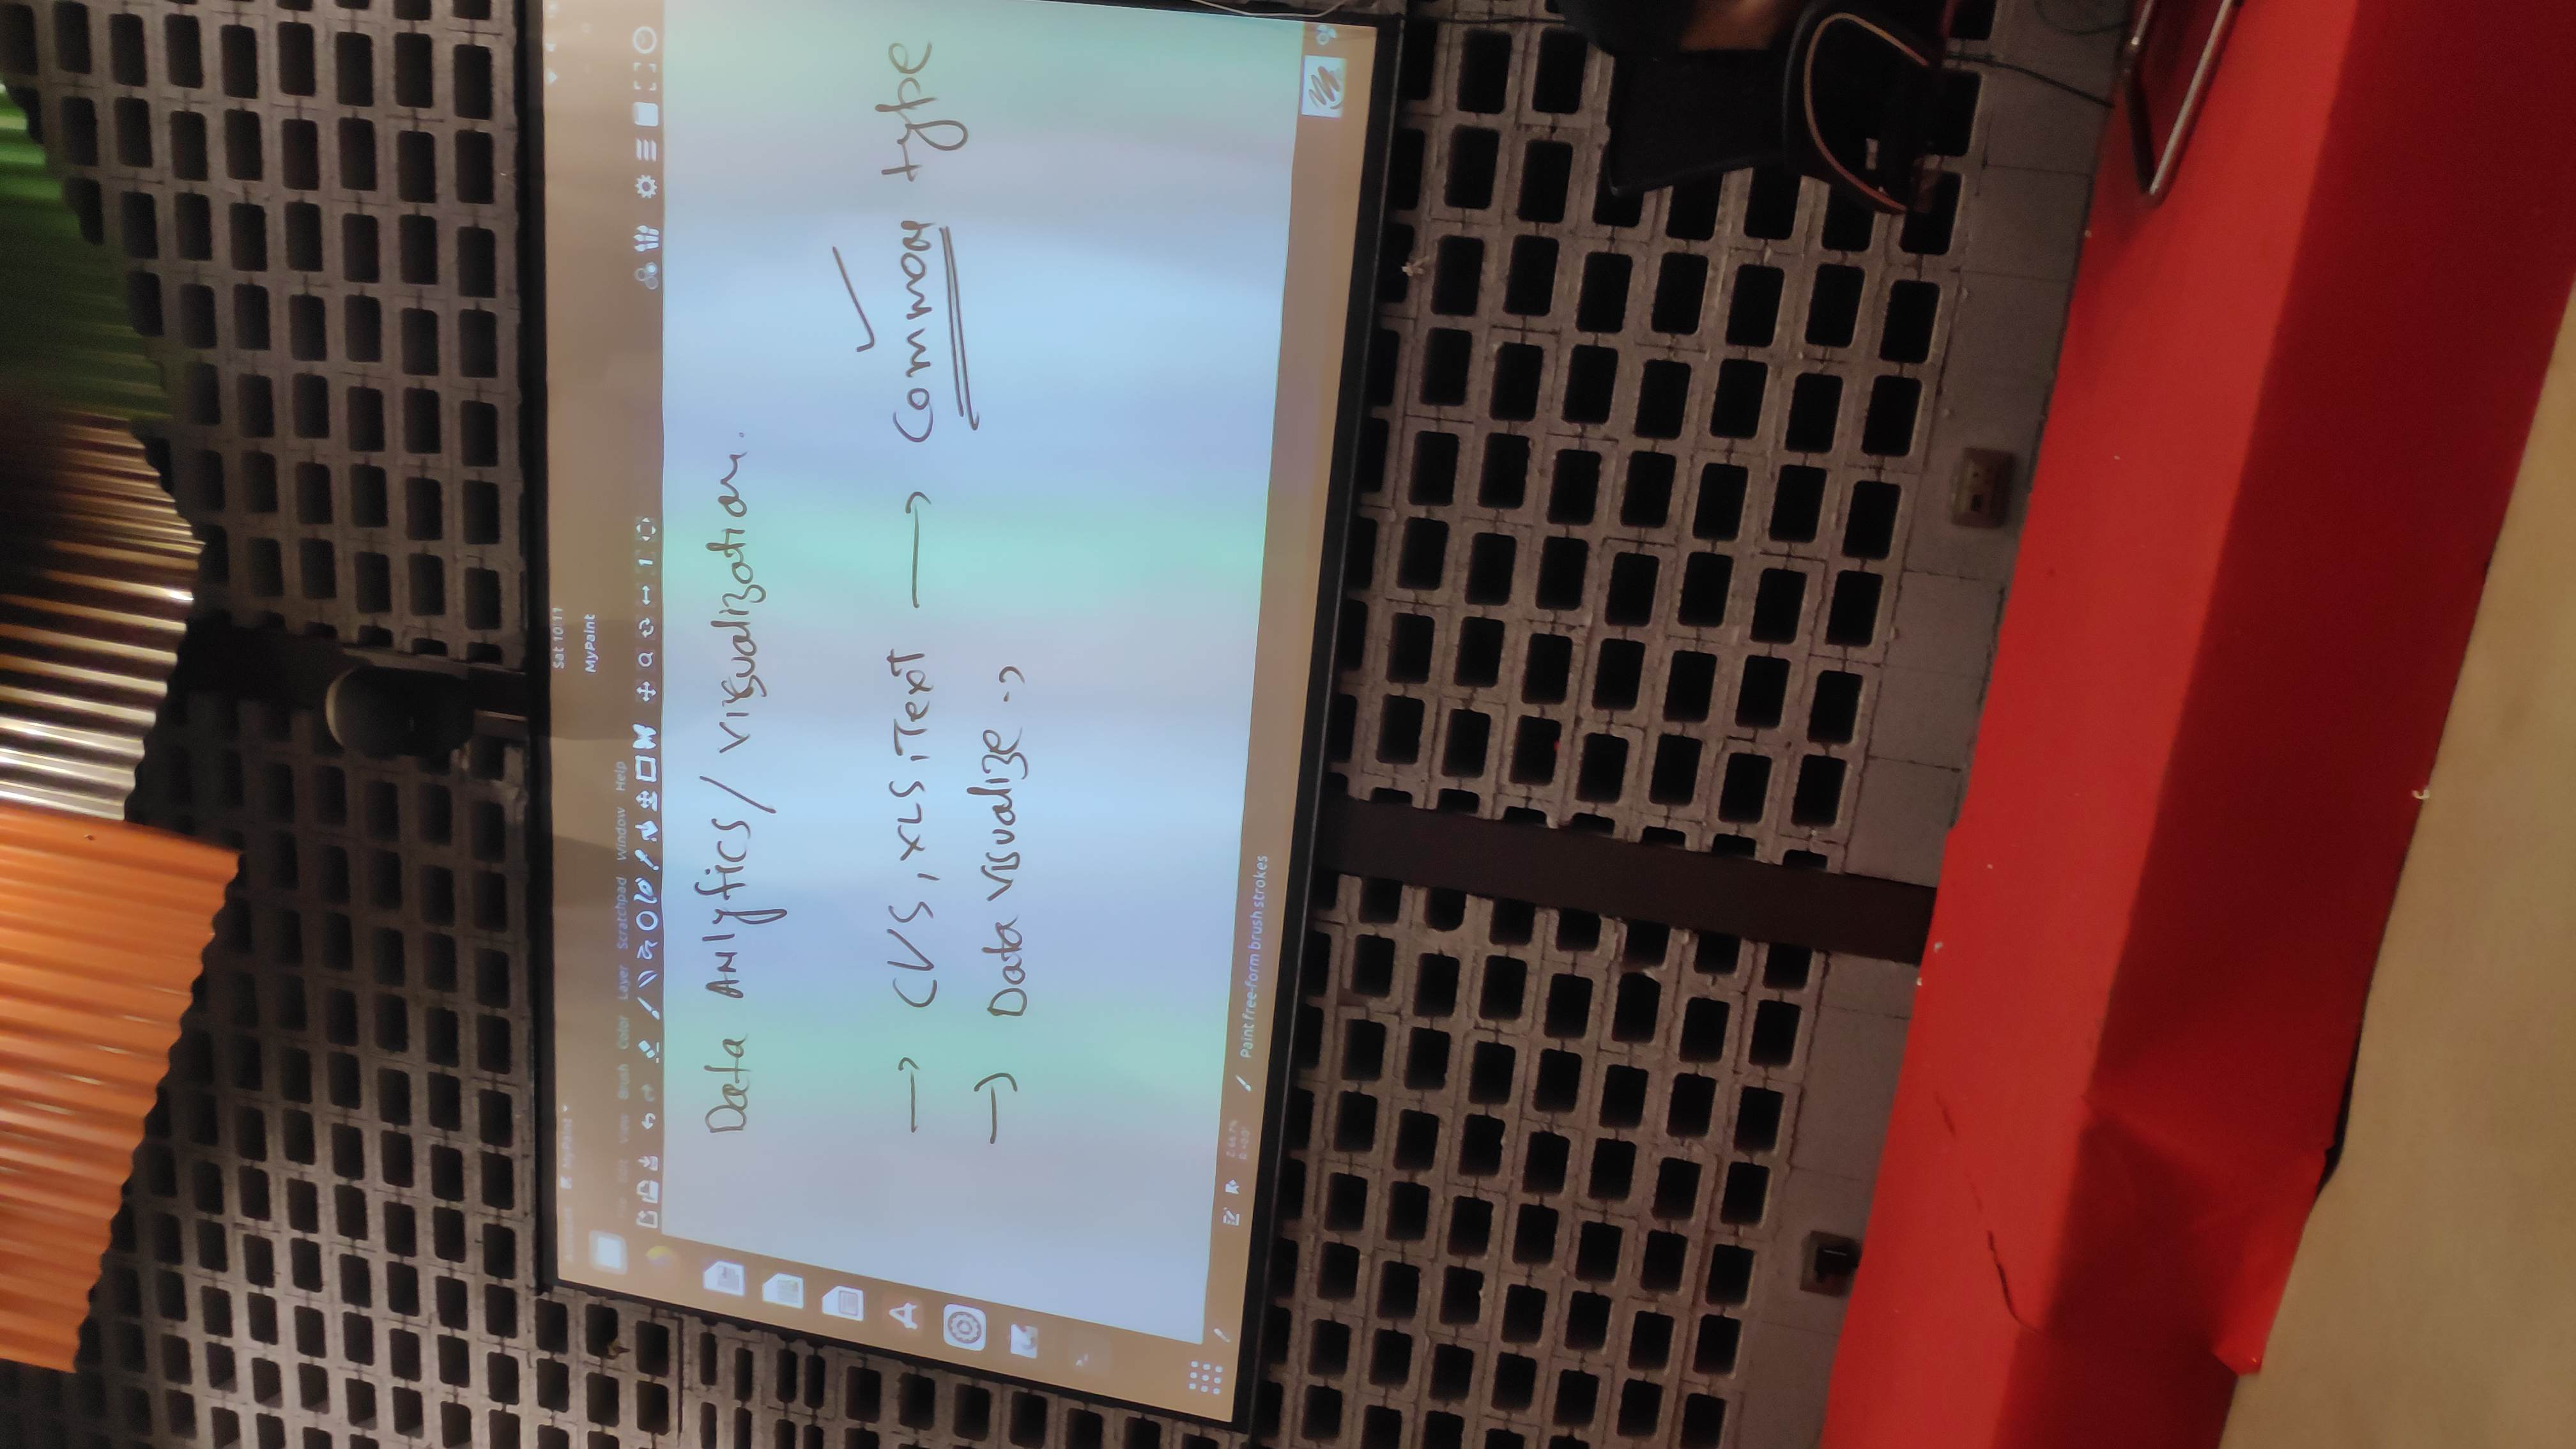 MyPaint
Sat 10:11
MyPaint
Edit View Brush Color Layer Scratchpad Window Help
Data Anlytics/ Visualization.
→ CVS, XLS, Text → Common type
→ Data Visualize
Paint free-form brush strokes